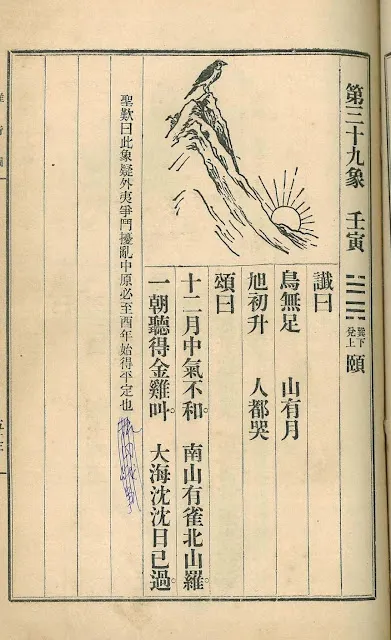 第三十九象 壬寅 巽下兌上 頤
讖曰
鳥無足 山有月
旭初升 人都哭
頌曰
十二月中氣不和。南山有雀北山羅。
一朝聽得金雞叫。大海沈沈日已過。
聖歎曰此象疑外夷爭鬥擾亂中原必至酉年始得平定也